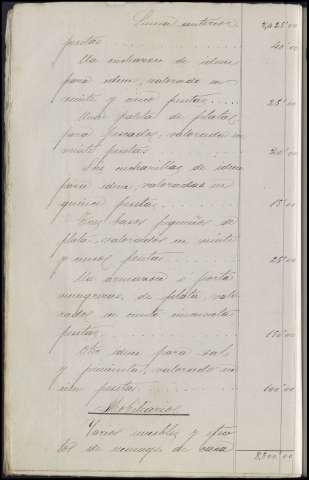 Suma anterior 2,425'00
pesetas 40'00
Un cucharon de idem
para idem, valorado en
veinte y cinco pesetas 25'00
Una pala de plata
para pescados, valorada en
veinte pesetas 20'00
Seis cucharillas de idem
para idem, valoradas en
quince pesetas 15'00
Tres vasos pequeños de
plata, valorados en veinte
y cinco pesetas 25'00
Un
de plata, valo-
rados en ciento cincuenta
pesetas 150'00
Otro idem para sal
y pimienta, valorado en
cien pesetas 100'00
Mobiliario
Varios muebles y efec-
tos de menage de casa
2,800'00